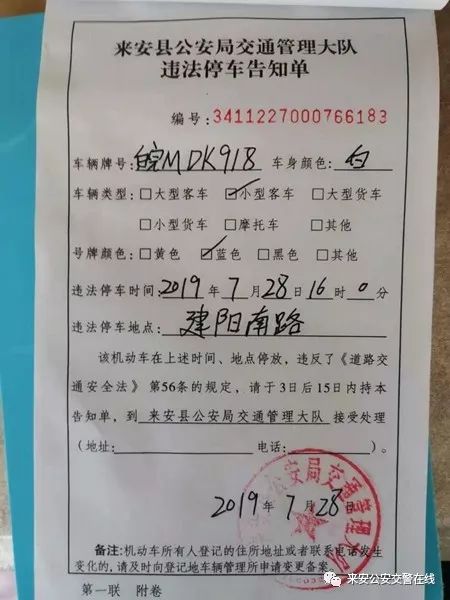 来安县公安局交通管理大队
违法停车告知单
编号:3411227000766183
车辆牌号:皖MDK918 车身颜色:白
车辆类型:□大型客车 ☑小型客车 □大型货车
□小型货车 □摩托车 □其他
号牌颜色:□黄色 ☑蓝色 □黑色 □其他
违法停车时间:2019年7月28日16时0分
违法停车地点:建阳南路
该机动车在上述时间、地点停放,违反了《道路交
通安全法》第56条的规定,请于3日后15日内持本
告知单,到来安县公安局交通管理大队接受处理
(地址: 电话: )。
公安局交通管理大队
2019年7月28日
备注:机动车所有人登记的住所地址或者联系电话发生
变化的,请及时向登记地车辆管理所申请变更备案。
第一联 附卷
来安公安交警在线